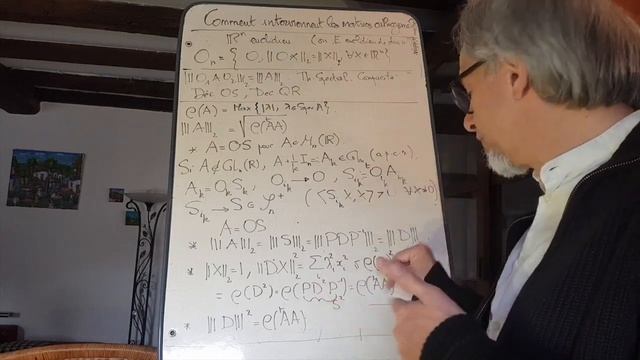 Comment interviennent les matrices orthogonales?
ℝⁿ euclidien (ou E euclidien de dim n)
Oₙ = { O, ||OX||₂ = ||X||₂, ∀X∈ℝⁿ }
|||O₁AO₂|||₂ = |||A|||₂ Th Spectral, Compacité
Déc OS, Dec QR
ρ(A) = Max{|λ|, λ∈Sp A}
|||A|||₂ = √ρ(ᵗAA)
* A = OS pour A∈Mₙ(ℝ)
Si A∉GLₙ(ℝ), A + 1/k Iₙ = Aₖ ∈ GLₙ(ℝ) (a.p.c.r)
Aₖ = OₖSₖ, O_ιₖ → O, S_ιₖ = ᵗO_ιₖ A_ιₖ
S_ιₖ → S ∈ Sₙ⁺ (<S_ιₖ X, X> > 0 ∀X≠0)
A = OS
* |||A|||₂ = |||S|||₂ = |||PDP⁻¹|||₂ = |||D|||
* ||X||² = 1, ||DX||₂² = Σ λᵢ² xᵢ² ≤ ρ(
= ρ(D²) = ρ(PD²P⁻¹) = ρ(ᵗAA)
S²
* |||D|||² = ρ(ᵗAA)